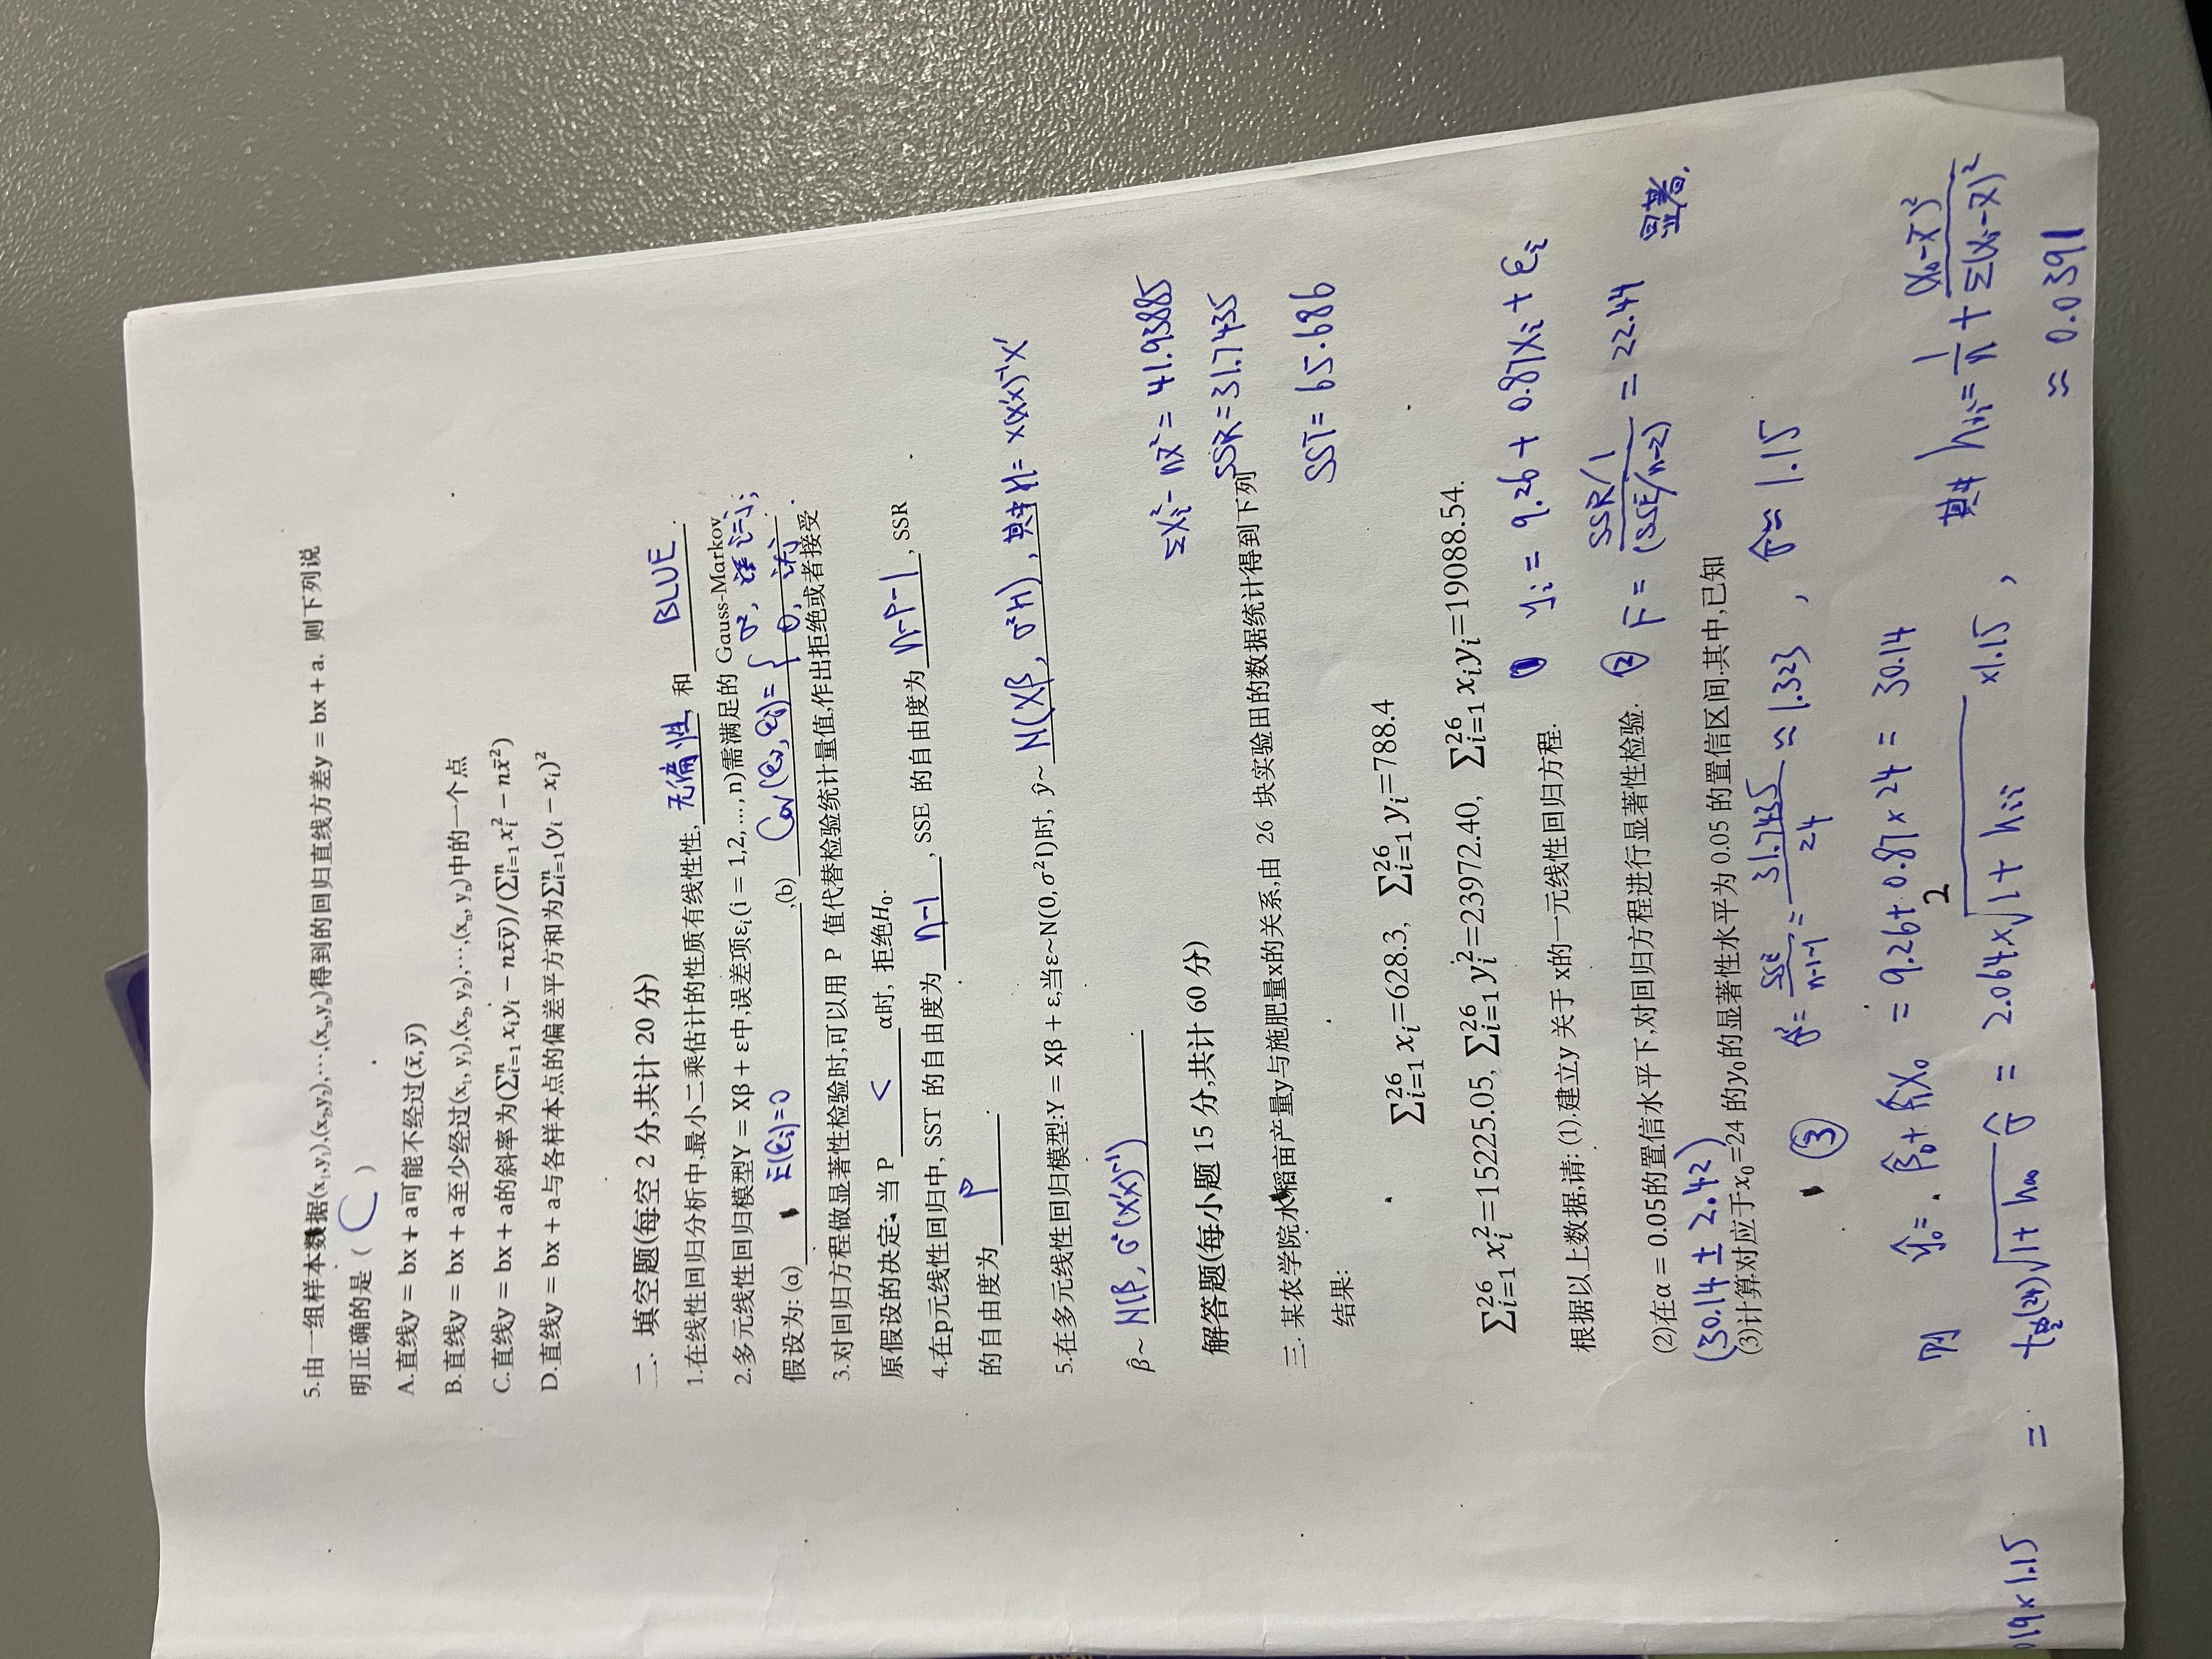 5.由一组样本数据(x₁,y₁),(x₂,y₂),⋯,(xₙ,yₙ)得到的回归直线方差y = bx + a, 则下列说
明正确的是 ( C )
A.直线y = bx + a可能不经过(x̄, ȳ)
B.直线y = bx + a至少经过(x₁, y₁),(x₂, y₂),⋯,(xₙ, yₙ)中的一个点
C.直线y = bx + a的斜率为(∑ⁿᵢ₌₁ xᵢyᵢ − nx̄ȳ)/(∑ⁿᵢ₌₁ xᵢ² − nx̄²)
D.直线y = bx + a与各样本点的偏差平方和为∑ⁿᵢ₌₁(yᵢ − xᵢ)²
二. 填空题(每空 2 分,共计 20 分)
1.在线性回归分析中,最小二乘估计的性质有线性性, 无偏性 和 BLUE .
2.多元线性回归模型Y = Xβ + ε中,误差项εᵢ(i = 1,2, …, n)需满足的 Gauss-Markov
假设为: (a) E(εᵢ)=0 ,(b) Cov(εᵢ, εⱼ)= { σ², i=j; 0, i≠j .
3.对回归方程做显著性检验时,可以用 P 值代替检验统计量值,作出拒绝或者接受
原假设的决定: 当 P < α时, 拒绝H₀.
4.在p元线性回归中, SST 的自由度为 n-1 , SSE 的自由度为 n-p-1 , SSR
的自由度为 p .
5.在多元线性回归模型:Y = Xβ + ε,当ε~N(0, σ²I)时, ŷ~ N(Xβ, σ²H), 其中H= X(X'X)⁻¹X'
β̂~ N(β, σ²(X'X)⁻¹) .
Σxᵢ² - nx̄² = 41.93885
解答题(每小题 15 分,共计 60 分)
SSR=31.7435
三. 某农学院水稻亩产量y与施肥量x的关系,由 26 块实验田的数据统计得到下列
结果:
SST= 65.686
∑²⁶ᵢ₌₁ xᵢ=628.3, ∑²⁶ᵢ₌₁ yᵢ=788.4
∑²⁶ᵢ₌₁ xᵢ²=15225.05, ∑²⁶ᵢ₌₁ yᵢ²=23972.40, ∑²⁶ᵢ₌₁ xᵢyᵢ=19088.54.
根据以上数据,请: (1).建立y 关于 x的一元线性回归方程.
① yᵢ = 9.26 + 0.87xᵢ + εᵢ
(2)在α = 0.05的置信水平下,对回归方程进行显著性检验.
② F = (SSR/1)/(SSE/n-2) = 22.44 显著.
(30.14 ± 2.42)
(3)计算对应于x₀=24 的y₀的显著性水平为 0.05 的置信区间.其中,已知
③ σ̂² = SSE/(n-1-1) = 31.7435/24 ≈ 1.323 , σ̂ ≈ 1.15
则 ŷ₀ = β̂₀ + β̂₁x₀ = 9.26 + 0.87 × 24 = 30.14
2
019×1.15 = t_α/2(24)√(1+h₀₀) σ̂ = 2.064×√(1+hᵢᵢ) ×1.15 , 其中 hᵢᵢ = 1/n + (x₀-x̄)²/Σ(xᵢ-x̄)²
≈ 0.0391